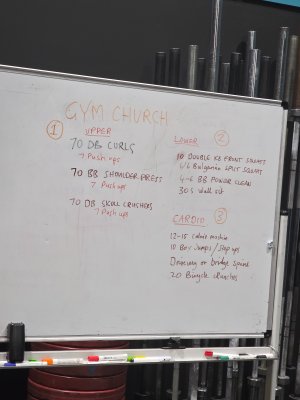 GYM CHURCH
1
UPPER
70 DB CURLS
7 Push ups
70 BB SHOULDER PRESS
7 Push ups
70 DB SKULL CRUSHERS
7 Push ups
LOWER 2
10 DOUBLE KB FRONT SQUATS
Bulgarian SPLIT SQUATS
4-6 BB POWER CLEAN
30s Wall sit
CARDIO 3
12-15 calorie machine
10 Box Jumps / Step ups
or bridge
20 Bicycle crunches